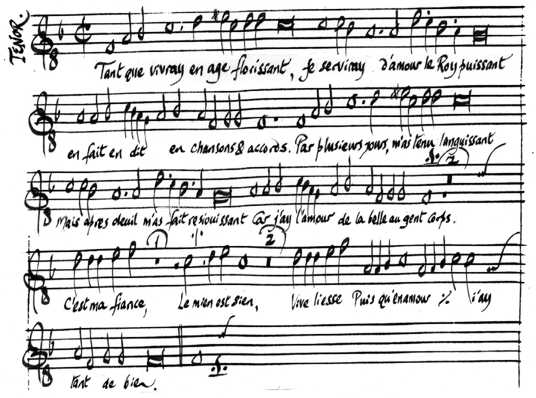 TENOR.
Tant que vivray en age florissant, Je serviray d'amour le Roy puissant
en fait en dit en chansons & accords. Par plusieurs jours, m'as tenu languissant
2
Mais apres deuil m'as fait resjouissant Car j'ay l'amour de la belle au gent corps.
1 2
C'est ma fiance, Le mien est sien, Vive liesse Puis qu'en amour j'ay
tant de bien.